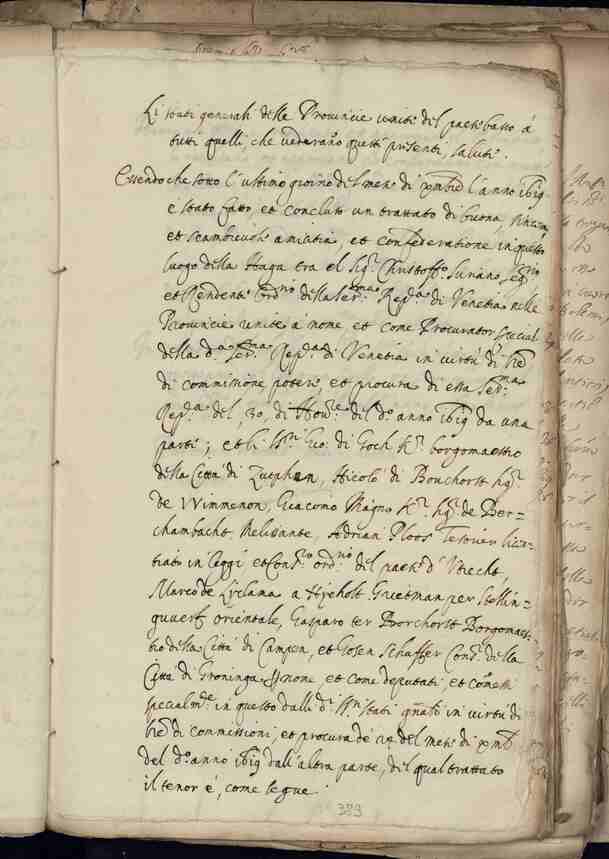 Li stati generali delle Provincie unite del paese basso à
tutti quelli, che vederano questi presenti, salute.
Essendo che sotto l'ultimo giorno del mese di xmbre l'anno 1619
e stato fatto, et concluso un trattato di buona, sincera,
et scambievole amicitia, et confederatione in questo
luogo della Haga tra el Sigr. Christoffo. Suriano, Segrio
et Residente Ordno della Serma. Repca. di Venetia nelle
Provincie unite à nome et come Procurator special
della da. Serma. Repca. di Venetia in virtù di sue
di commissione, potere, et procura di essa Serma.
Repca. del 30, di Novre. del do. anno 1619 da una
parte; et li Ssri. Gio. di Goch Kr. borgomastro
della Città di Zutphen, Nicolò di Bouchorst Sigr.
de Wimmenon, Giacomo Magno Kr. Sigr. de Ber=
chambacht, Melisante, Adrian Ploos Tesorier licen=
tiato in leggi et Consro. ordno. del paese d'Utrecht,
Marco de Liclama a Nyeholt Grietman per Stellin=
guverf orientale, Gasparo ter Borchorst Borgomast=
tro della Città di Campen, et Gosen Schaffer Consr. della
Città di Groninga, nome et come deputati, et comessi
specialmte. in questo dalli di. Ssri stati gnali in virtù di
di commissioni, et procura de 29 del mese di xmbre
del do. anno 1619 dall'altra parte, del qual trattato
il tenor è, come segue.
383